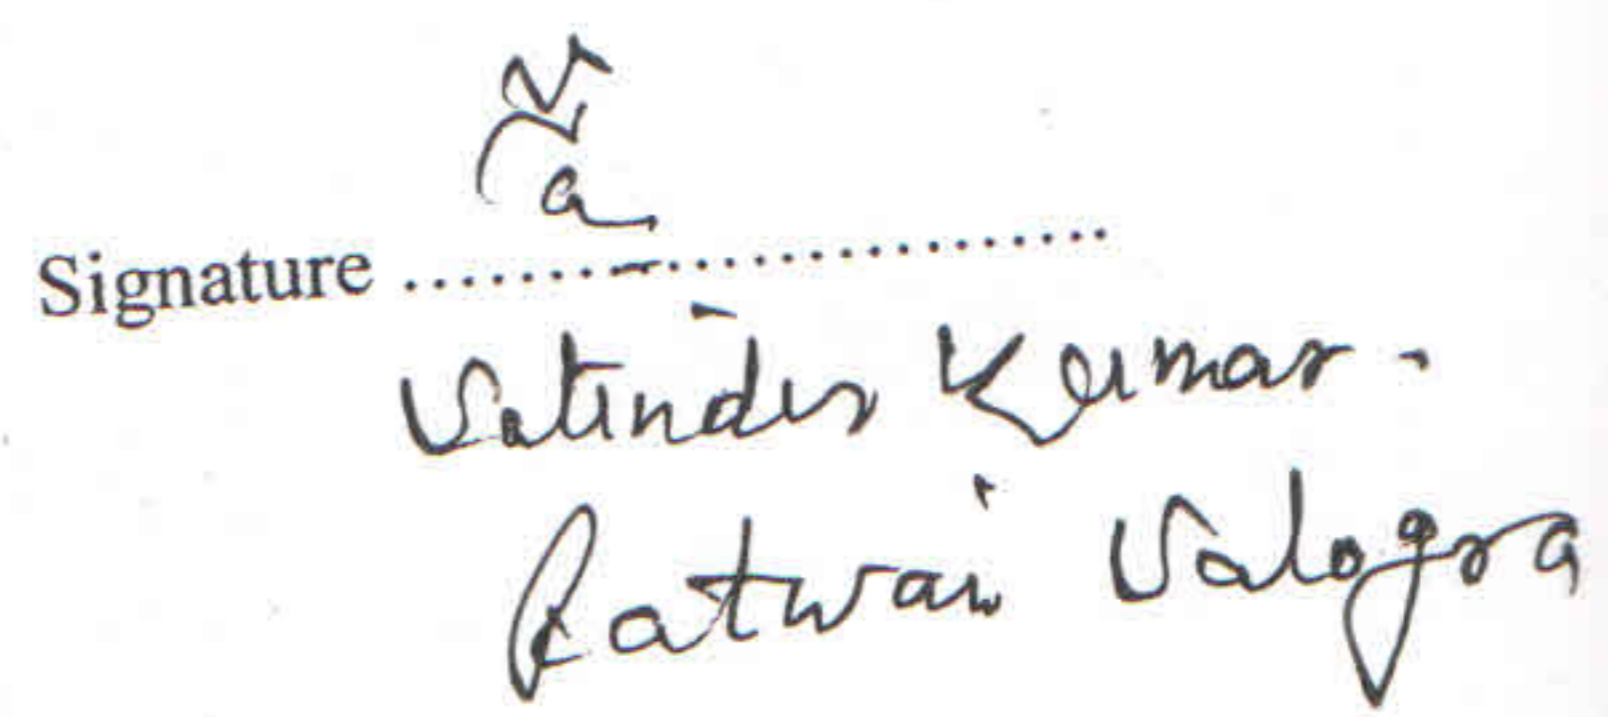 Signature ....................
Vatinder Kumar.
Patwari Valogra